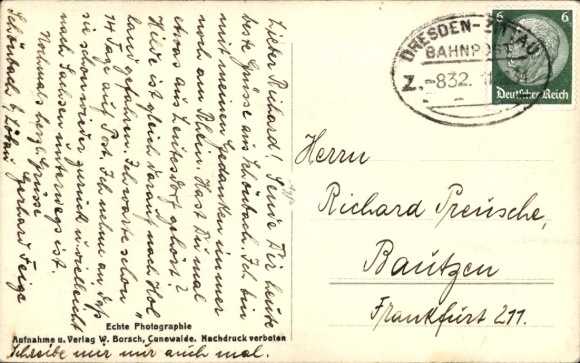 Lieber Richard! Sende Dir heute
beste Grüsse aus Schönbach. Ich bin
mit meinen Gedanken immer
noch am Rhein. Hast Du mal
etwas aus Leutesdorf gehört?
Hilde ist gleich darauf nach Hol
land gefahren. Ich warte schon
14 Tage auf Post. Ich nehme an, daß
sie schon wieder zurück u. vielleicht
nach Sachsen unterwegs ist.
Nochmals herzl. Grüsse
Gerhard Feige
Schönbach b. Löbau
Echte Photographie
Aufnahme u. Verlag W. Borsch, Cunewalde. Nachdruck verboten
Schreibe mir nur auch mal.
DRESDEN-ZITTAU
BAHNPOST
Z. 832
6 6
Deutsches Reich
Herrn
Richard Preusche,
Bautzen
Frankfurt 211.